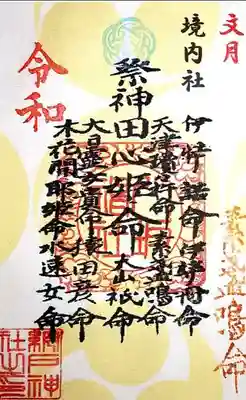 文月
境内社
伊弉諾命 伊弉冉命
天津瓊々杵命 素盞嗚命
祭神 田心姫命 大山祇命
大日孁女貴命 猿田彦命
木花開耶姫命 水速女命
令和
素盞嗚命